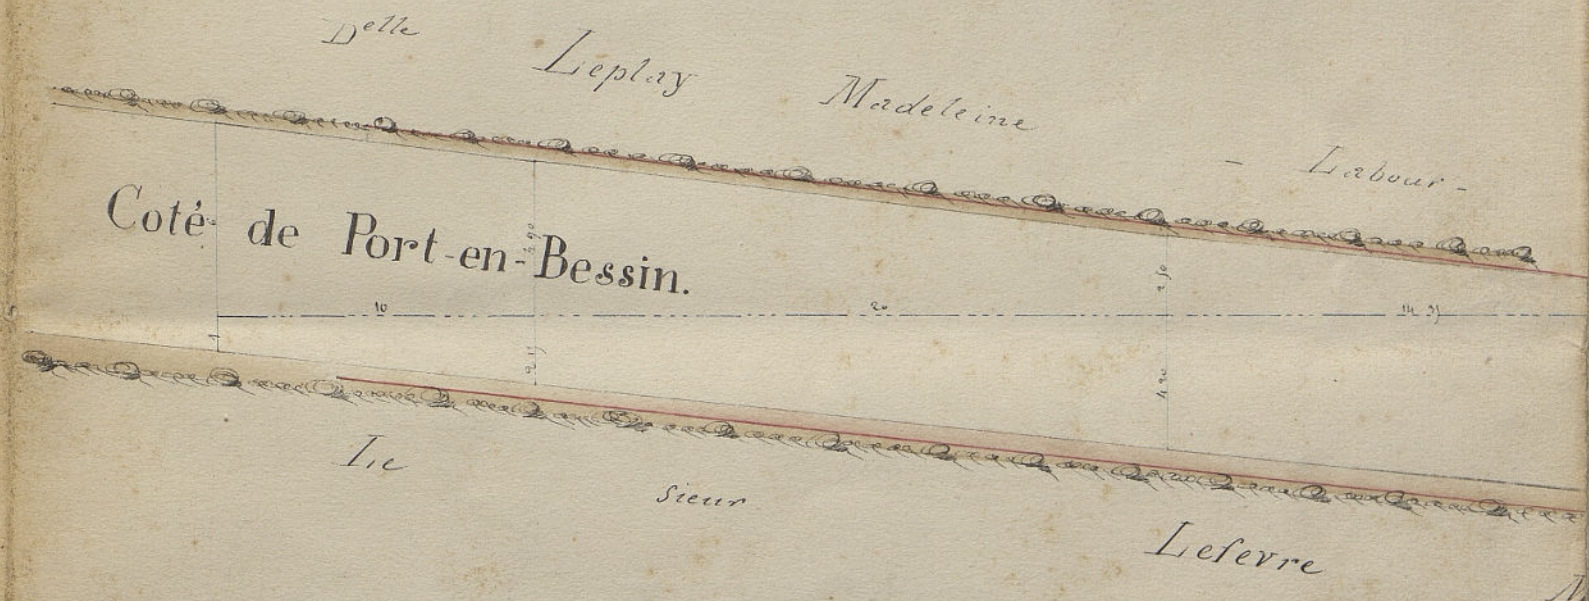 Delle Leplay Madeleine - Labour -
Coté de Port-en-Bessin.
10 20
2 15
2 50
4 20
Le sieur Lefevre